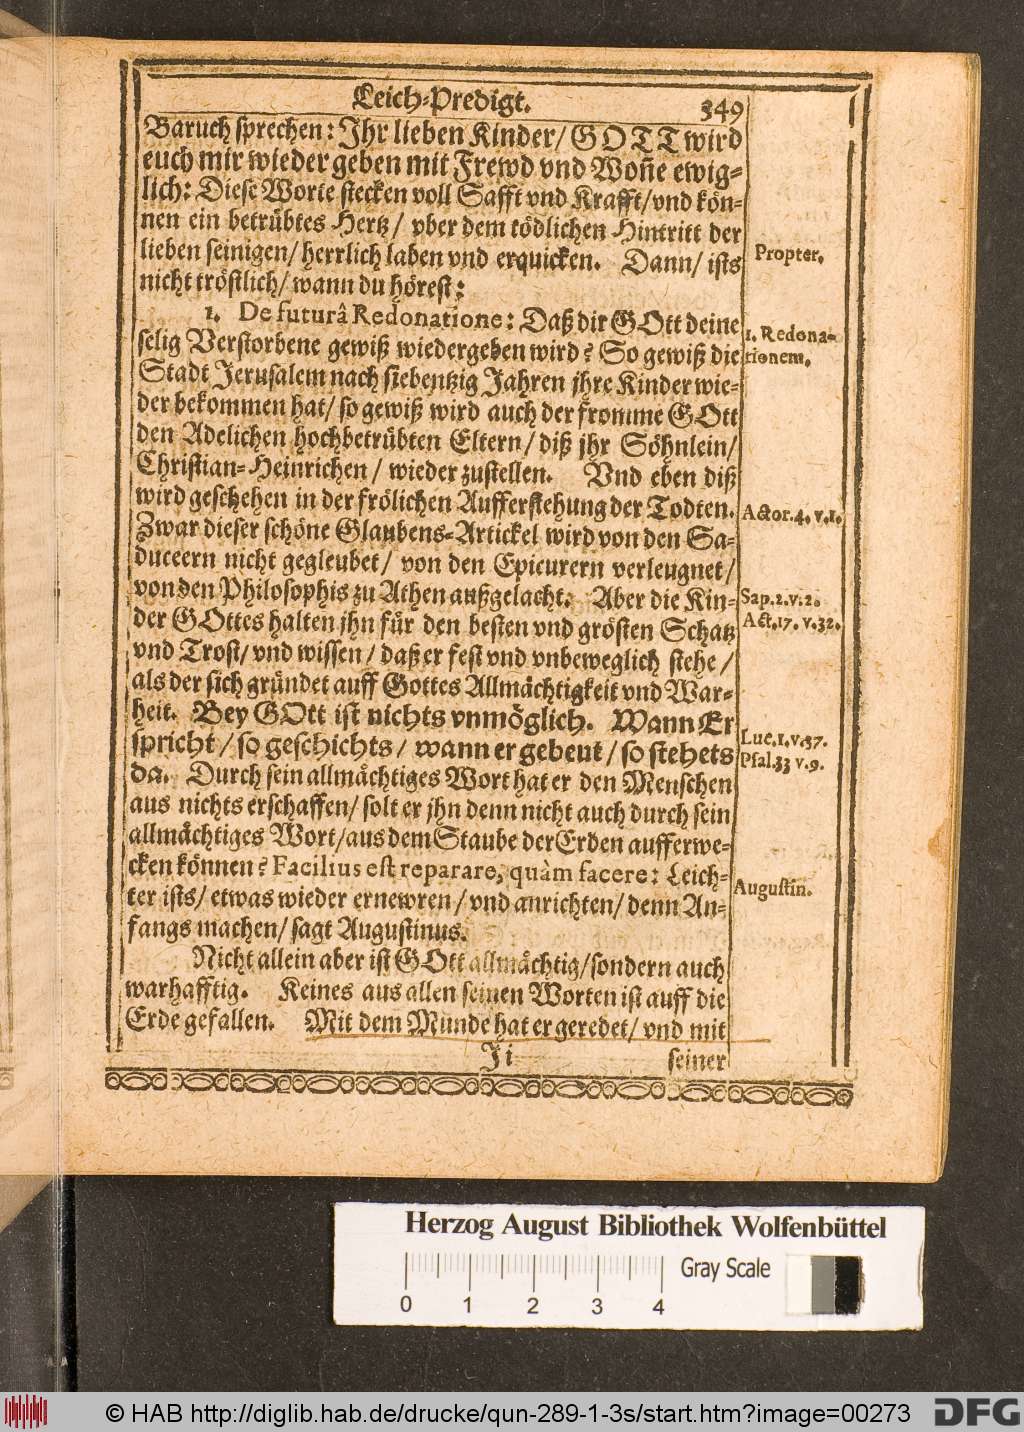 Leich-Predigt.
349
Baruch sprechen: Ihr lieben Kinder/ GOTT wird
euch mir wieder geben mit Frewd vnd Woñe ewig-
lich: Diese Worte stecken voll Safft vnd Krafft/ vnd kön-
nen ein betrübtes Hertz/ vber dem tödlichen Hintritt der
lieben seinigen/ herrlich laben vnd erquicken. Dann/ ists
nicht tröstlich/ wann du hörest:
Propter.
1. De futurâ Redonatione: Daß dir GOtt deine
selig Verstorbene gewiß wiedergeben wird? So gewiß die
Stadt Jerusalem nach siebentzig Jahren jhre Kinder wie-
der bekommen hat/ so gewiß wird auch der fromme GOtt
den Adelichen hochbetrübten Eltern/ diß jhr Söhnlein/
Christian-Heinrichen/ wieder zustellen. Vnd eben diß
wird geschehen in der frölichen Aufferstehung der Todten.
Zwar dieser schöne Glaubens-Artickel wird von den Sa-
duceern nicht gegleubet/ von den Epicurern verleugnet/
von den Philosophis zu Athen außgelacht: Aber die Kin-
der GOttes halten jhn für den besten vnd grösten Schatz
vnd Trost/ vnd wissen/ daß er fest vnd vnbeweglich stehe/
als der sich gründet auff Gottes Allmächtigkeit vnd War-
heit. Bey GOtt ist nichts vnmöglich. Wann Er
spricht/ so geschichts/ wann er gebeut/ so stehets
da. Durch sein allmächtiges Wort hat er den Menschen
aus nichts erschaffen/ solt er jhn denn nicht auch durch sein
allmächtiges Wort/ aus dem Staube der Erden aufferwe-
cken können? Facilius est reparare, quàm facere: Leich-
ter ists/ etwas wieder ernewren/ vnd anrichten/ denn An-
fangs machen/ sagt Augustinus.
1. Redona-
tionem.
Actor. 4. v. 1.
Sap. 2. v. 2.
Act. 17. v. 32.
Luc. 1. v. 37.
Psal. 33 v. 9.
Augustin.
Nicht allein aber ist GOtt allmächtig/ sondern auch
warhafftig. Keines aus allen seinen Worten ist auff die
Erde gefallen. Mit dem Munde hat er geredet/ vnd mit
Ii
seiner
Herzog August Bibliothek Wolfenbüttel
Gray Scale
0 1 2 3 4
© HAB http://diglib.hab.de/drucke/qun-289-1-3s/start.htm?image=00273
DFG